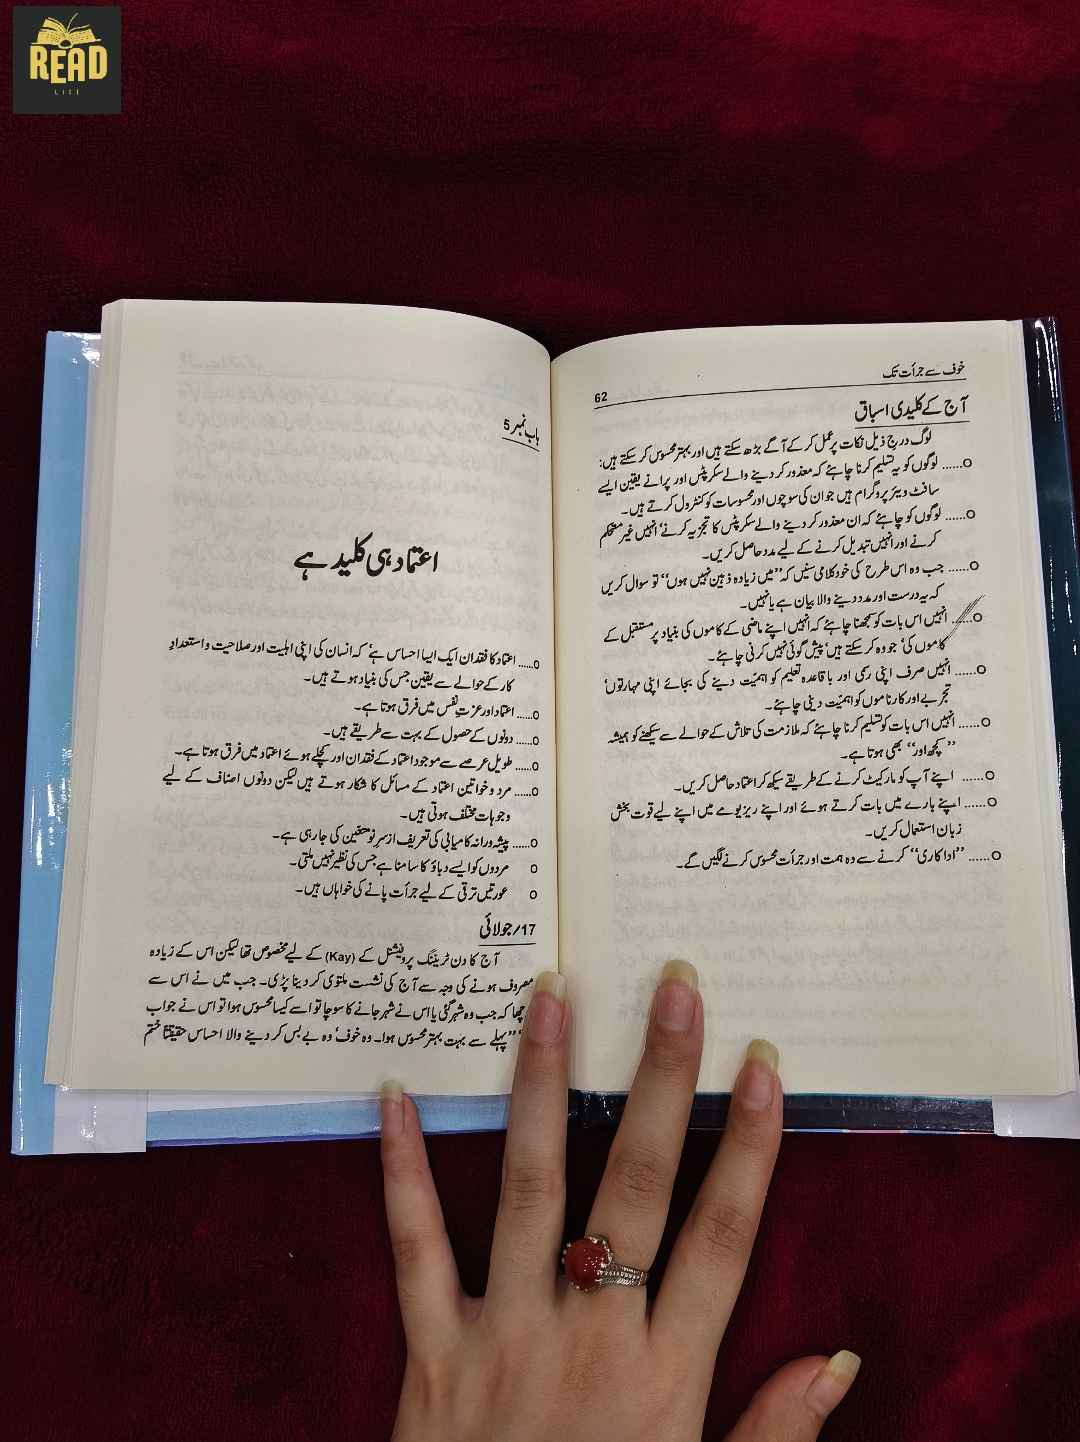 READ
LIFE
خوف سے جرأت تک
62
آج کے کلیدی اسباق
لوگ درج ذیل نکات پر عمل کر کے آگے بڑھ سکتے ہیں اور بہتر محسوس کر سکتے ہیں:
o...... لوگوں کو یہ تسلیم کرنا چاہئے کہ معذور کر دینے والے سکرپٹس اور پرانے یقین ایسے
سافٹ ویئر پروگرام ہیں جو ان کی سوچوں اور محسوسات کو کنٹرول کرتے ہیں۔
o...... لوگوں کو چاہئے کہ ان معذور کر دینے والے سکرپٹس کا تجزیہ کرنے‘ انہیں غیر مستحکم
کرنے اور انہیں تبدیل کرنے کے لیے مدد حاصل کریں۔
o...... جب وہ اس طرح کی خود کلامی سنیں کہ ’’میں زیادہ ذہین نہیں ہوں‘‘ تو سوال کریں
کہ یہ درست اور مدد دینے والا بیان ہے یا نہیں۔
o...... انہیں اس بات کو سمجھنا چاہئے کہ انہیں اپنے ماضی کے کاموں کی بنیاد پر مستقبل کے
کاموں کی‘ جو وہ کر سکتے ہیں‘ پیش گوئی نہیں کرنی چاہئے۔
o...... انہیں صرف اپنی رسمی اور باقاعدہ تعلیم کو اہمیت دینے کی بجائے اپنی مہارتوں‘
تجربے اور کارناموں کو اہمیت دینی چاہئے۔
o...... انہیں اس بات کو تسلیم کرنا چاہئے کہ ملازمت کی تلاش کے حوالے سے سیکھنے کو ہمیشہ
’’کچھ اور‘‘ بھی ہوتا ہے۔
o...... اپنے آپ کو مارکیٹ کرنے کے طریقے سیکھ کر اعتماد حاصل کریں۔
o...... اپنے بارے میں بات کرتے ہوئے اور اپنے ریزیومے میں اپنے لیے قوت بخش
زبان استعمال کریں۔
o...... ’’اداکاری‘‘ کرنے سے وہ ہمت اور جرأت محسوس کرنے لگیں گے۔
باب نمبر 5
اعتماد ہی کلید ہے
o...... اعتماد کا فقدان ایک ایسا احساس ہے‘ کہ انسان کی اپنی اہلیت اور صلاحیت و استعدادِ
کار کے حوالے سے یقین جس کی بنیاد ہوتے ہیں۔
o...... اعتماد اور عزتِ نفس میں فرق ہوتا ہے۔
o...... دونوں کے حصول کے بہت سے طریقے ہیں۔
o...... طویل عرصے سے موجود اعتماد کے فقدان اور کچلے ہوئے اعتماد میں فرق ہوتا ہے۔
o...... مرد و خواتین اعتماد کے مسائل کا شکار ہوتے ہیں لیکن دونوں اصناف کے لیے
وجوہات مختلف ہوتی ہیں۔
o...... پیشہ ورانہ کامیابی کی تعریف ازسرِنو متعین کی جا رہی ہے۔
o مردوں کو ایسے دباؤ کا سامنا ہے جس کی نظیر نہیں ملتی۔
o عورتیں ترقی کے لیے جرأت پانے کی خواہاں ہیں۔
17/جولائی
آج کا دن ٹریننگ پروفیشنل کے (Kay) کے لیے مخصوص تھا لیکن اس کے زیادہ
مصروف ہونے کی وجہ سے آج کی نشست ملتوی کر دینا پڑی۔ جب میں نے اس سے
کہ جب وہ شہر گئی یا اس نے شہر جانے کا سوچا تو اسے کیسا محسوس ہوا تو اس نے جواب
’’پہلے سے بہت بہتر محسوس ہوا۔ وہ خوف‘ وہ بے بس کر دینے والا احساس حقیقتاً ختم